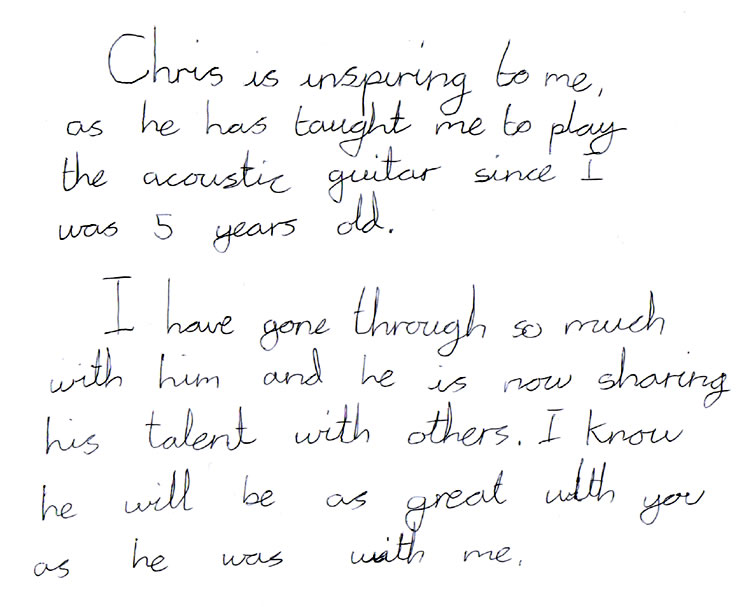 Chris is inspiring to me,
as he has taught me to play
the acoustic guitar since I
was 5 years old.
I have gone through so much
with him and he is now sharing
his talent with others. I know
he will be as great with you
as he was with me.